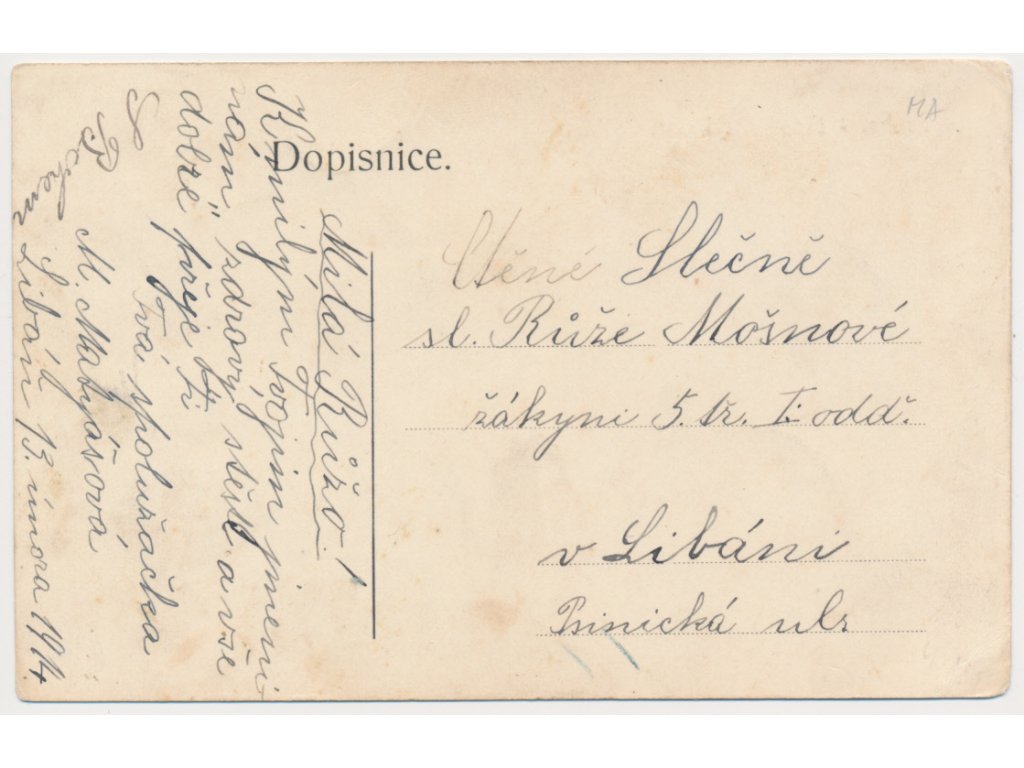 MA
Dopisnice.
Milá Růžo!
K milým Tvojim jmeni-
nám zdraví, štěstí a vše
dobré přeje Ti
Tvá spolužačka
M. Matyjášová
S Bohem!
Libáň 13. února 1914.
Ctěné Slečně
sl. Růže Mošnové
žákyni 5. tř. I. odd.
v Libáni
Psinická ul.